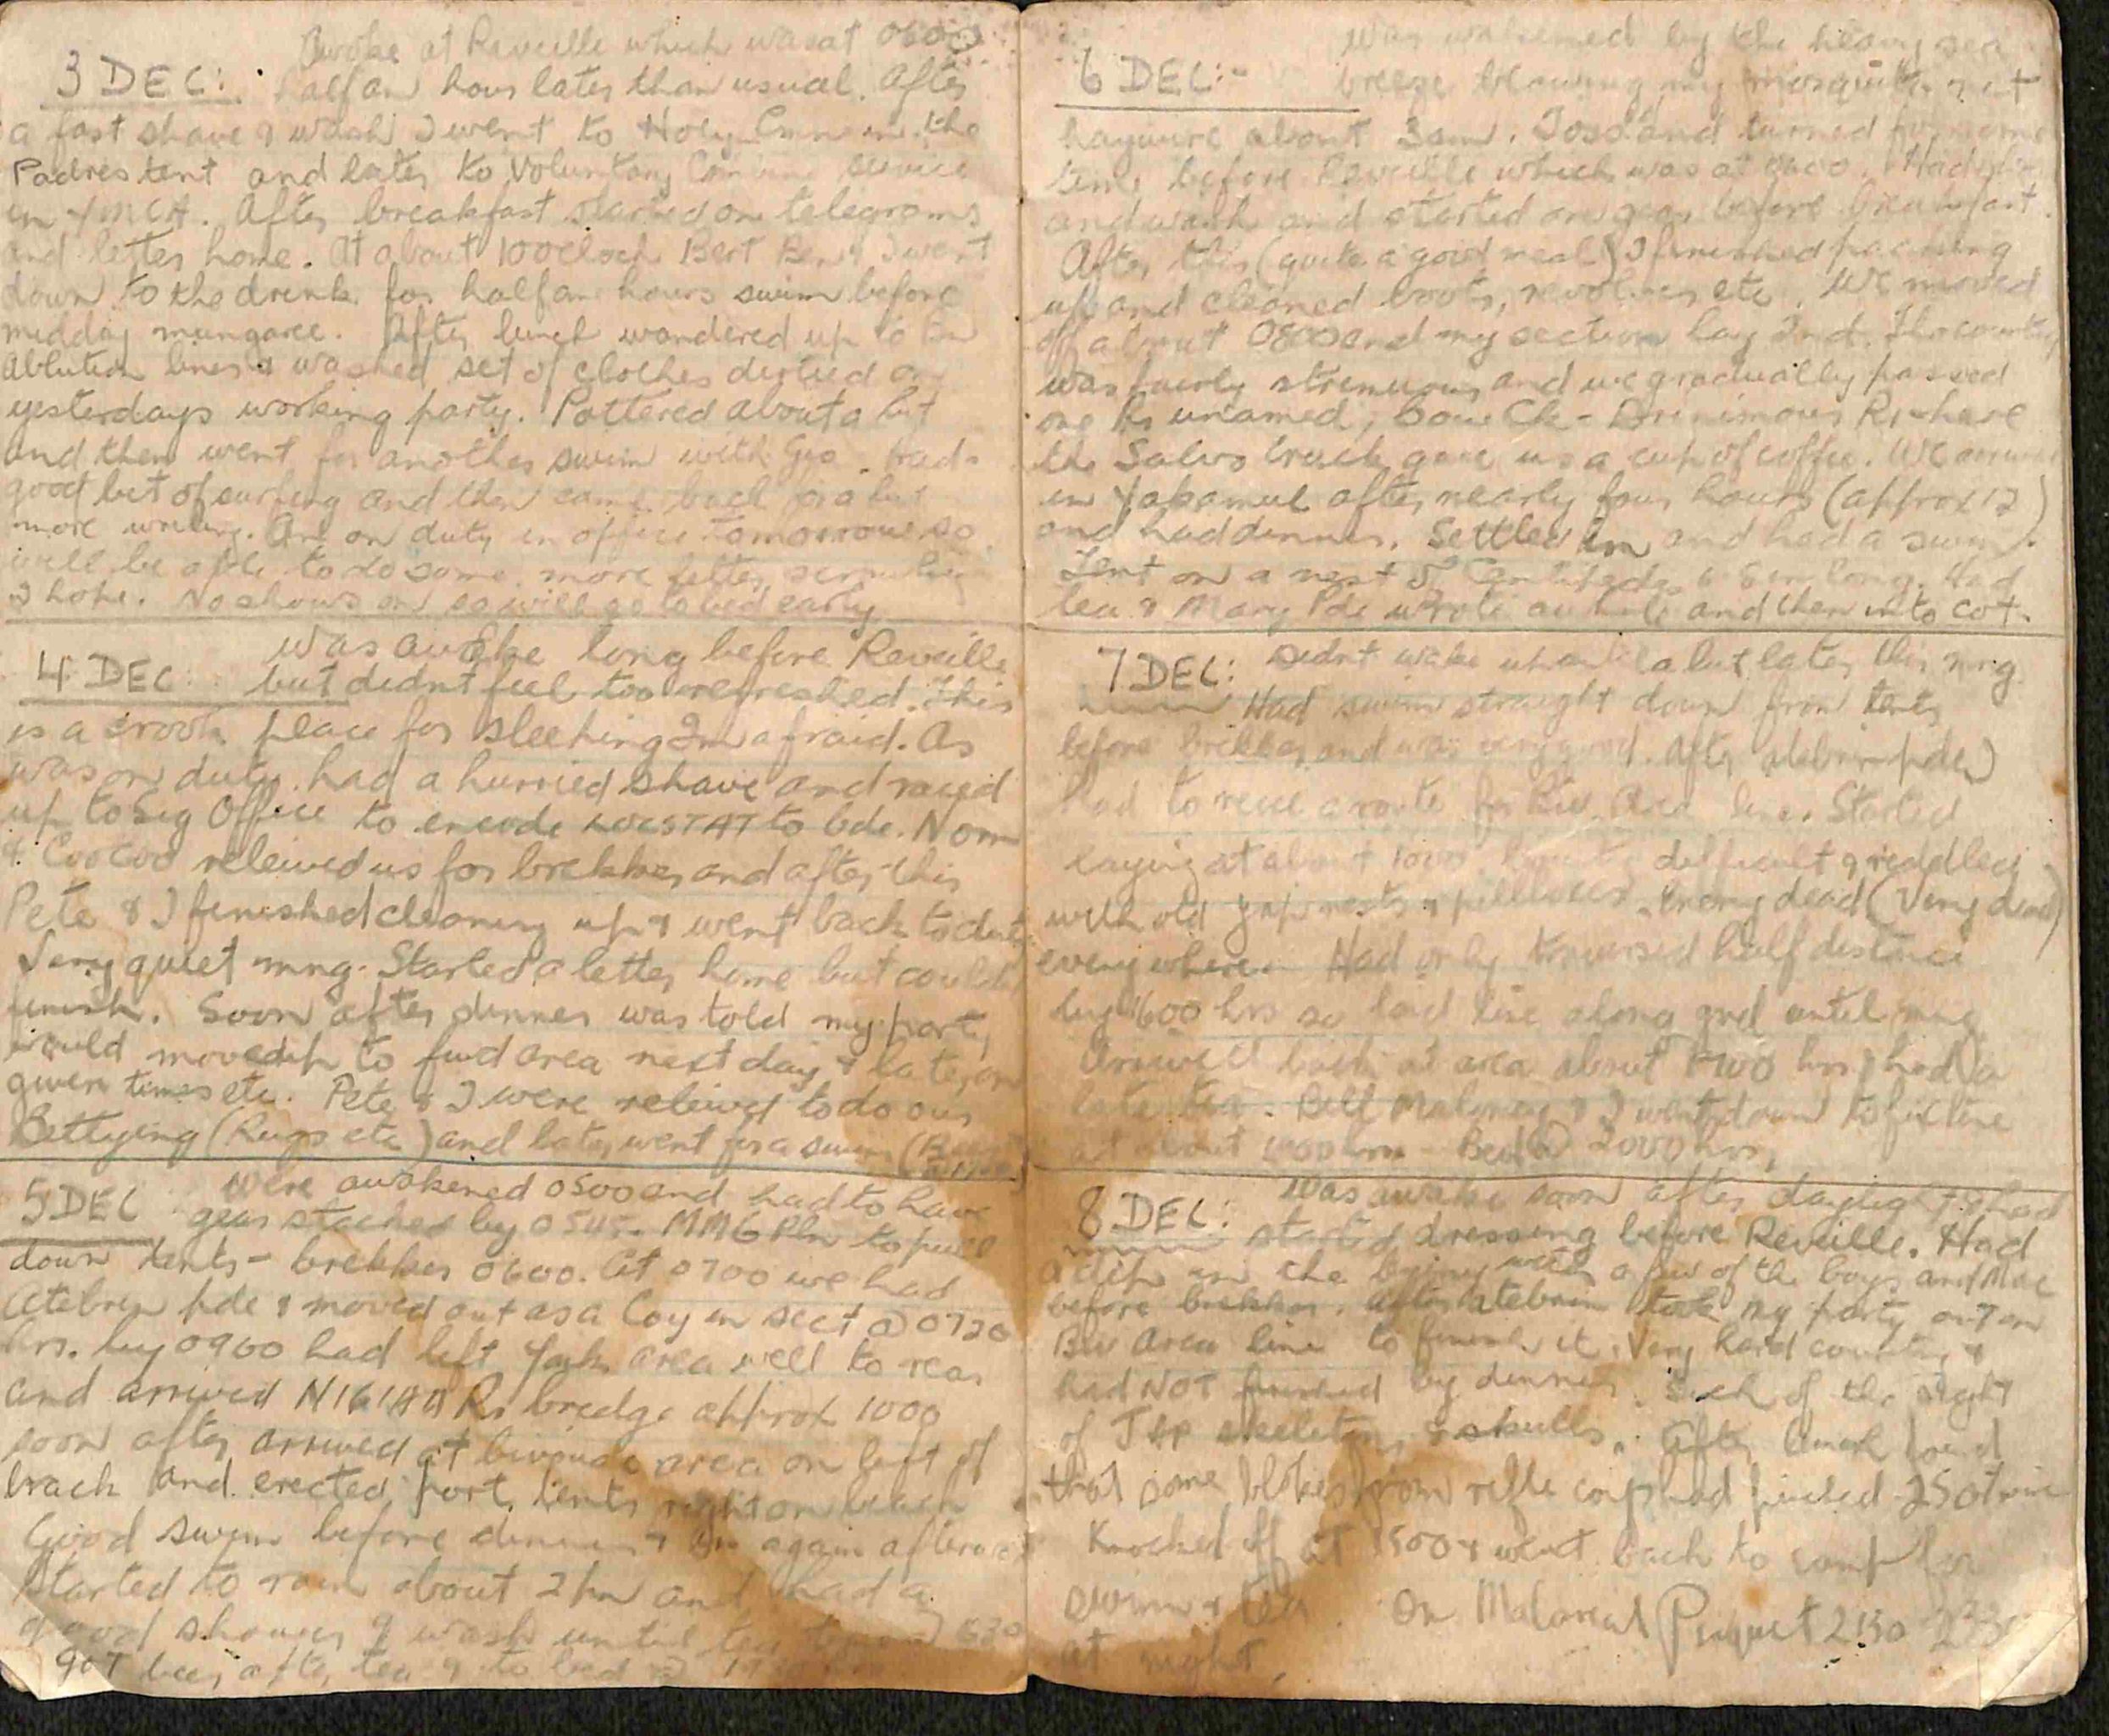 Awoke at Reveille which was at 0600
3 DEC: half an hour later than usual. After
a fast shave & wash I went to Holy Cmn in the
Padres tent and later to Voluntary service
in YMCA. After breakfast started on telegrams
and letter home. At about 10 oclock Bert Ben & I went
down to the drink for half an hours swim before
midday mungaree. After lunch wandered up to
Ablution lines & washed set of clothes dirtied on
yesterdays working party. Pottered about a bit
and then went for another swim with Geo. Had
good bit of surfing and then came back for a bit
more writing. Am on duty in office tomorrow so
will be able to do some more letter
I hope. No shows on so will go to bed early
4 DEC: was awake long before Reveille
but didnt feel too refreshed. This
is a crook place for sleeping Im afraid. As
was on duty had a hurried shave and raced
up to Sig Office to encode LOCSTAT to bde. Norm
& CooCoo releived us for brekker and after this
Pete & I finished cleaning up & went back to duty
Very quiet mng. Started a letter home but couldnt
finish. Soon after dinner was told my party
would move up to fwd area next day & later on
given times etc. Pete & I were releived to do our
Bettying (Rugs etc) and later went for a swim
5 DEC were awakened 0500 and had to have
gear stacked by 0545. MMG Pln to pull
down tents - brekker 0600. At 0700 we had
Atebrin pde & moved out as a Coy in sect @ 0720
hrs. by 0900 had left area well to rear
and arrived NIGIAR R. bridge approx 1000
soon after arrived at bivouac area on left of
track and erected tents right on beach
Good swim before dinner & again
Started to rain about 2pm and had a
good shower & wash until tea
got beer after tea & to bed @
6 DEC:- was wakened by the heavy sea
breeze blowing my mosquito net
haywire about 3am. Tossed and turned for some
time before Reveille which was at 0600. Had
and wash and started on gear before breakfast.
After this (quite a good meal) I finished packing
up and cleaned boots, revolver etc. We moved
off about 0800 and my section lay 2nd. The country
was fairly strenuous and we gradually passed
one R. unamed, Ck - Drinimour R. where
the Salvo truck gave us a cup of coffee. We arrived
in Yakamul after nearly four hours (approx 12)
and had dinner. Settled in and had a swim.
Tent on a nest of Centipedes 6 - 8 in long. Had
tea & Mary Pde wrote awhile and then into cot.
7 DEC: Didnt wake until a bit later this mng
Had swim straight down from tents
before brekker and was very good. After atebrin pde
Had to recce a route for Biv. Area line. Started
laying at about 1000. difficult & riddled
with old Jap nests & pillboxes. Enemy dead (Very dead)
everywhere. Had only traversed half distance
by 1600 hrs so laid line along grd until mng
Arrived back at area about 1700 hrs, had a
late tea. Bill Maloney & I went down to fix line
at about hrs - Bed @ 2000 hrs,
8 DEC: Was awake soon after daylight & had
started dressing before Reveille. Had
a dip in the briny with a few of the boys and Mac
before brekker. After atebrin took my party out on
Biv Area line to finish it. Very hard country &
had NOT finished by dinner. Sick of the sight
of Jap skeletons & skulls. After lunch found
that some blokes from rifle coys had pinched 250x wire
Knocked off at 1500 & went back to camp for
swim & tea. On Malarial Picquet 2130 2330
at night.